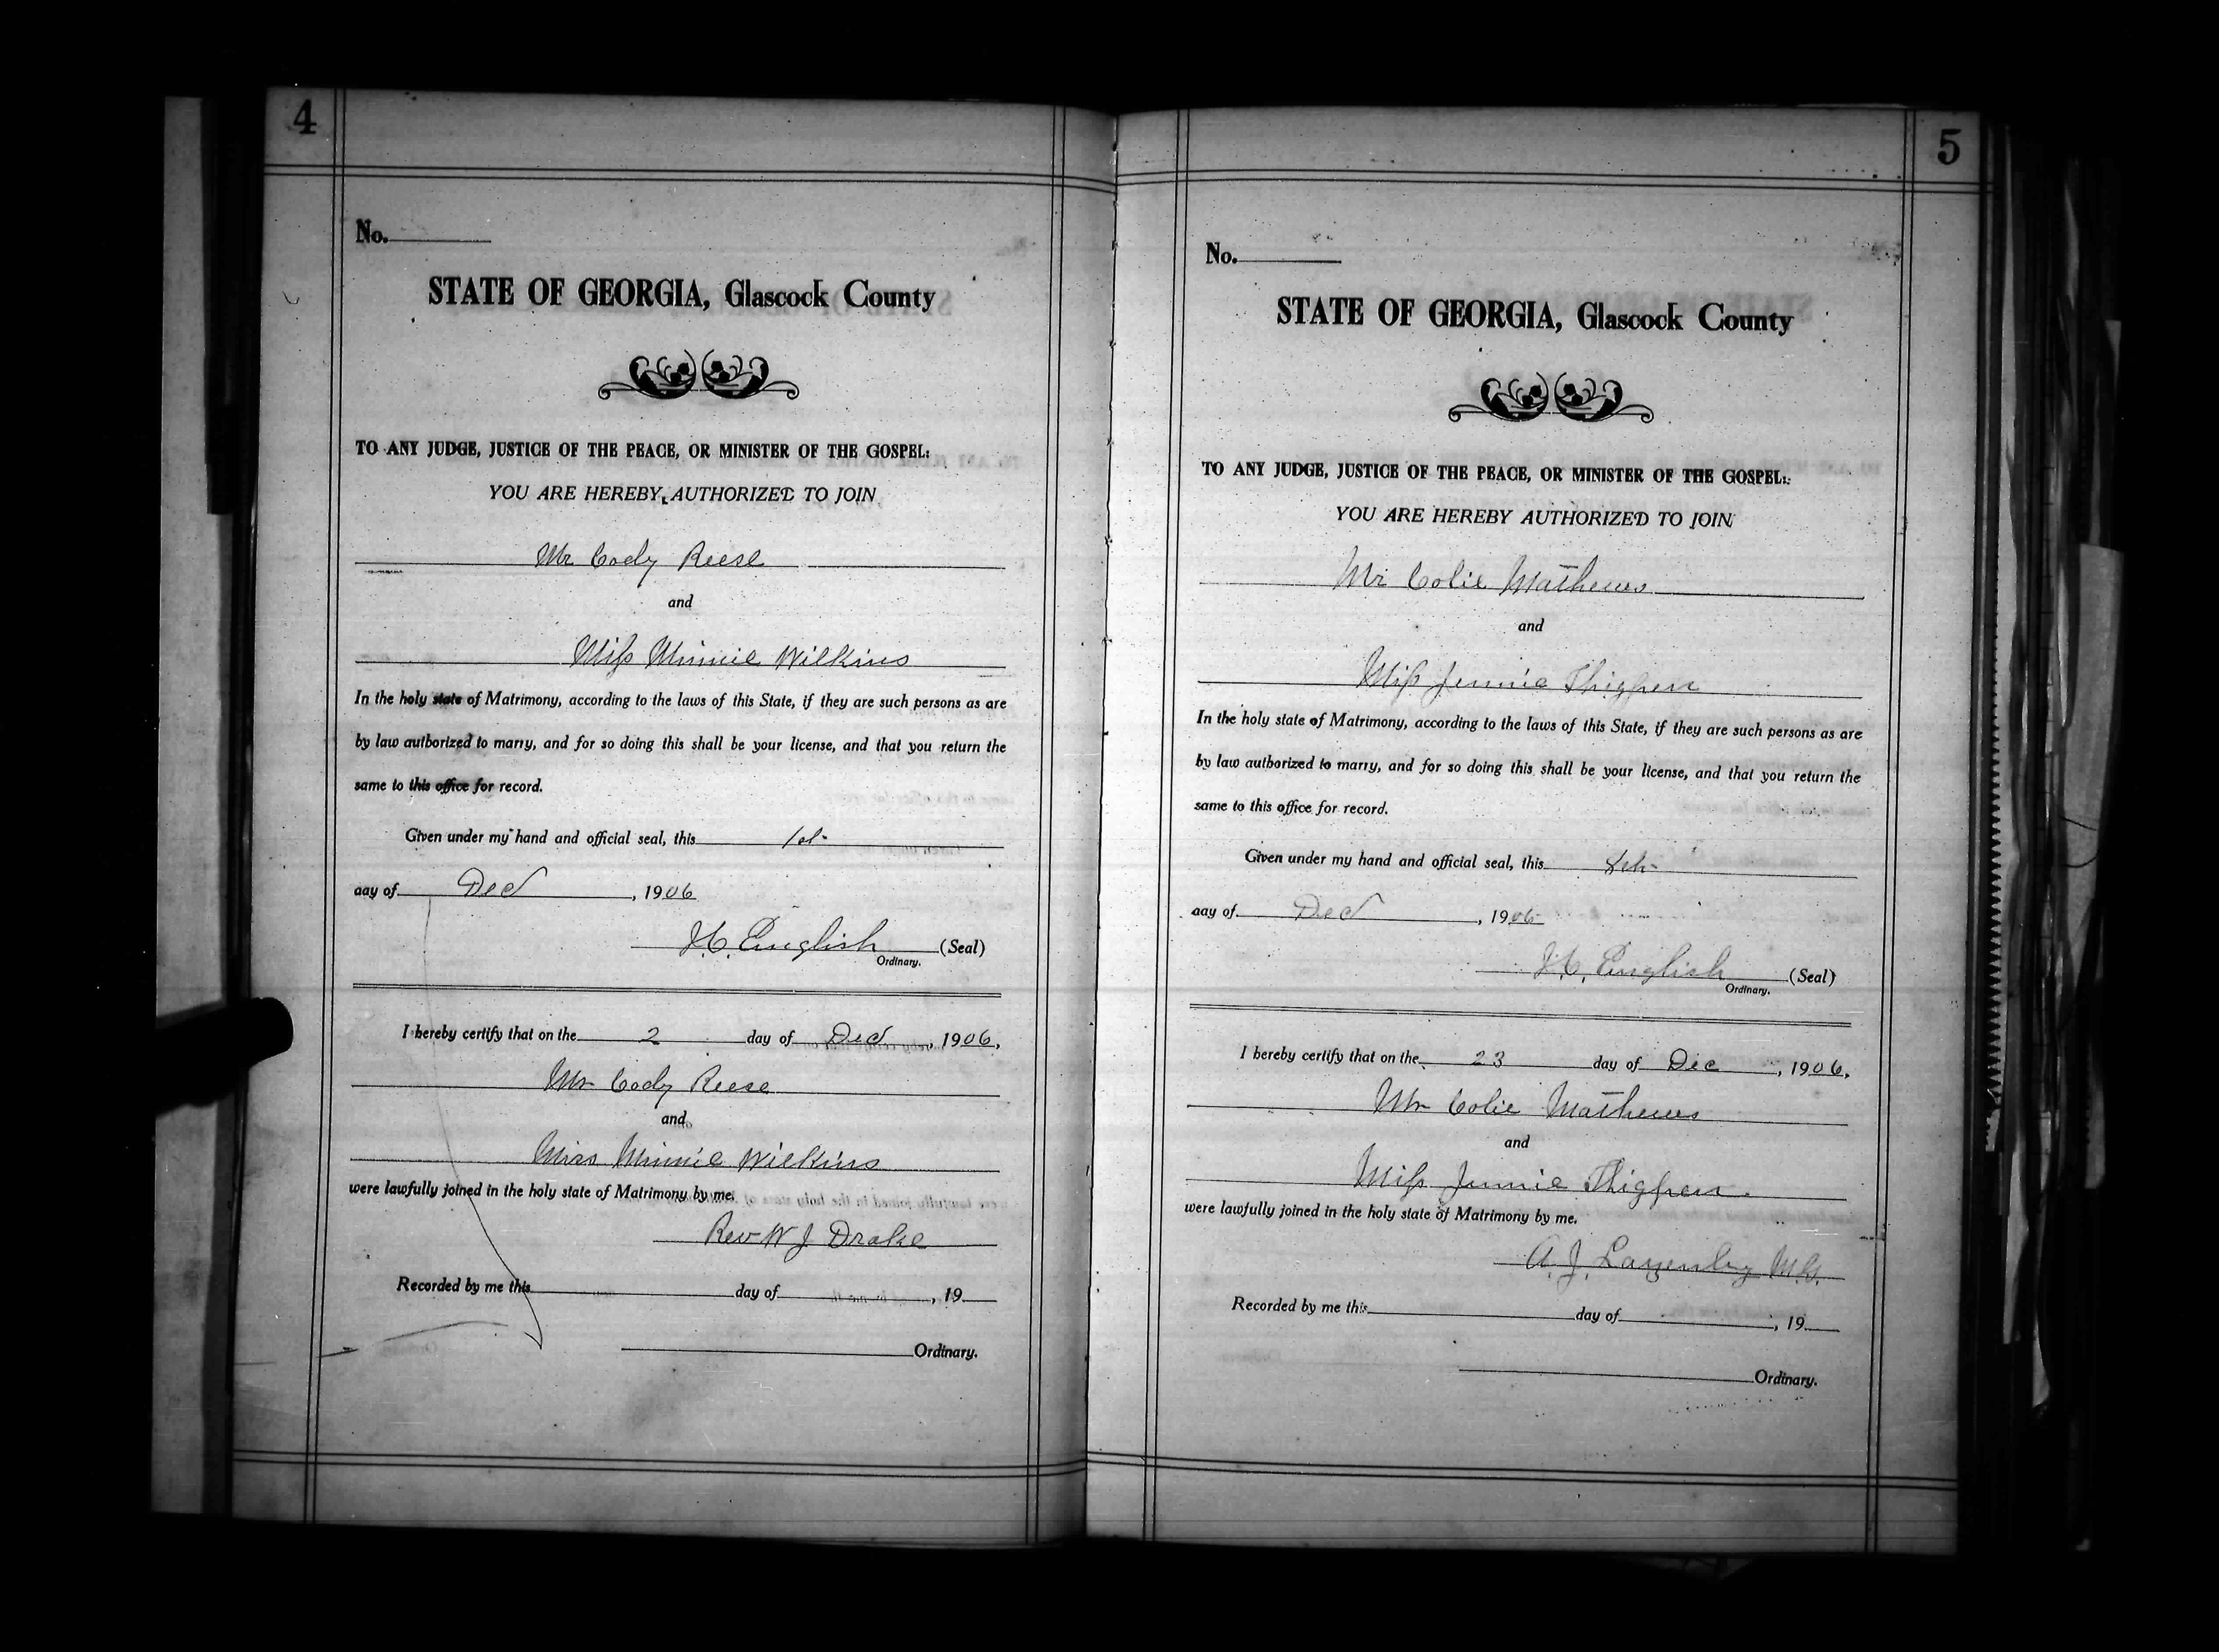 4
No.
STATE OF GEORGIA, Glascock County
TO ANY JUDGE, JUSTICE OF THE PEACE, OR MINISTER OF THE GOSPEL:
YOU ARE HEREBY AUTHORIZED TO JOIN
Mr Cody Reese
and
Miss Minnie Wilkins
In the holy state of Matrimony, according to the laws of this State, if they are such persons as are
by law authorized to marry, and for so doing this shall be your license, and that you return the
same to this office for record.
Given under my hand and official seal, this 1st
day of Dec, 1906
English (Seal)
Ordinary.
I hereby certify that on the 2 day of Dec, 1906,
Mr Cody Reese
and
Miss Minnie Wilkins
were lawfully joined in the holy state of Matrimony by me.
Rev W J Drake
Recorded by me this day of , 19
Ordinary.
5
No.
STATE OF GEORGIA, Glascock County
TO ANY JUDGE, JUSTICE OF THE PEACE, OR MINISTER OF THE GOSPEL:
YOU ARE HEREBY AUTHORIZED TO JOIN
Mr Colie Mathews
and
Miss Jennie Thigpen
In the holy state of Matrimony, according to the laws of this State, if they are such persons as are
by law authorized to marry, and for so doing this shall be your license, and that you return the
same to this office for record.
Given under my hand and official seal, this 8th
day of Dec, 1906
English (Seal)
Ordinary.
I hereby certify that on the 23 day of Dec, 1906,
Mr Colie Mathews
and
Miss Jennie Thigpen.
were lawfully joined in the holy state of Matrimony by me.
A. J. Lazenby M.G.
Recorded by me this day of , 19
Ordinary.